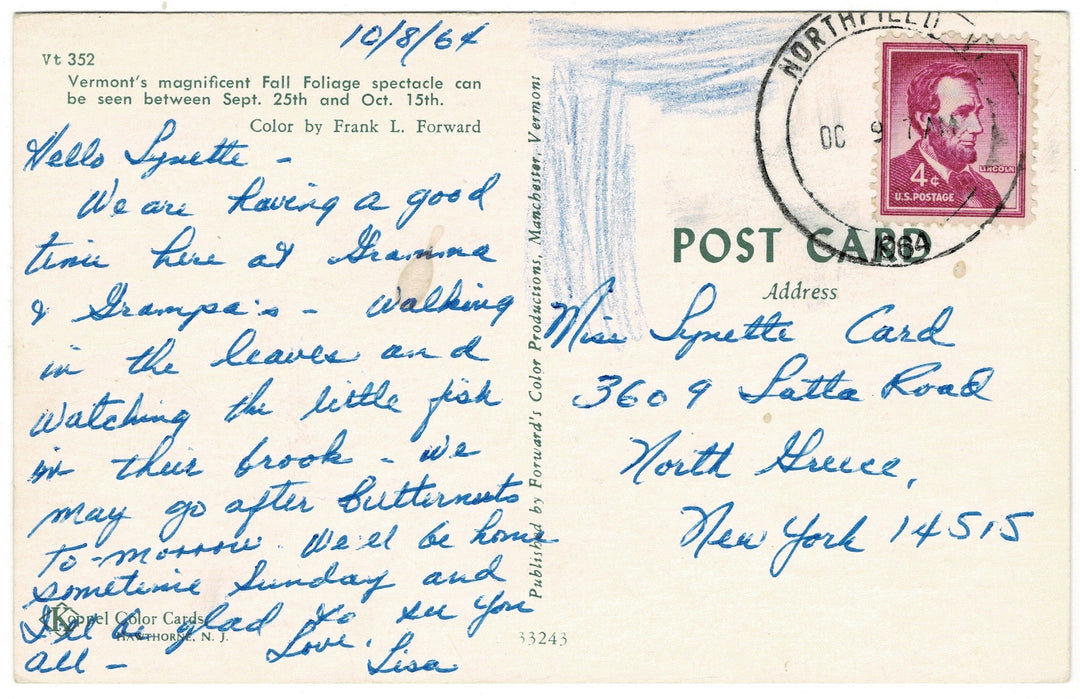 10/8/64
Vt 352
Vermont's magnificent Fall Foliage spectacle can
be seen between Sept. 25th and Oct. 15th.
Color by Frank L. Forward
Hello Lynette -
We are having a good
time here at Gramma
& Grampa's - Walking
in the leaves and
watching the little fish
in their brook - We
may go after butternuts
to-morrow. We'll be home
sometime Sunday and
I'll be glad to see you
all -
Love,
Lisa
Koppel Color Cards
HAWTHORNE, N. J.
Published by Forward's Color Productions, Manchester, Vermont
33243
NORTHFIELD, VT
OC 9 7 AM
1964
LINCOLN
4¢
U.S. POSTAGE
POST CARD
Address
Miss Lynette Card
3609 Latta Road
North Greece,
New York 14515